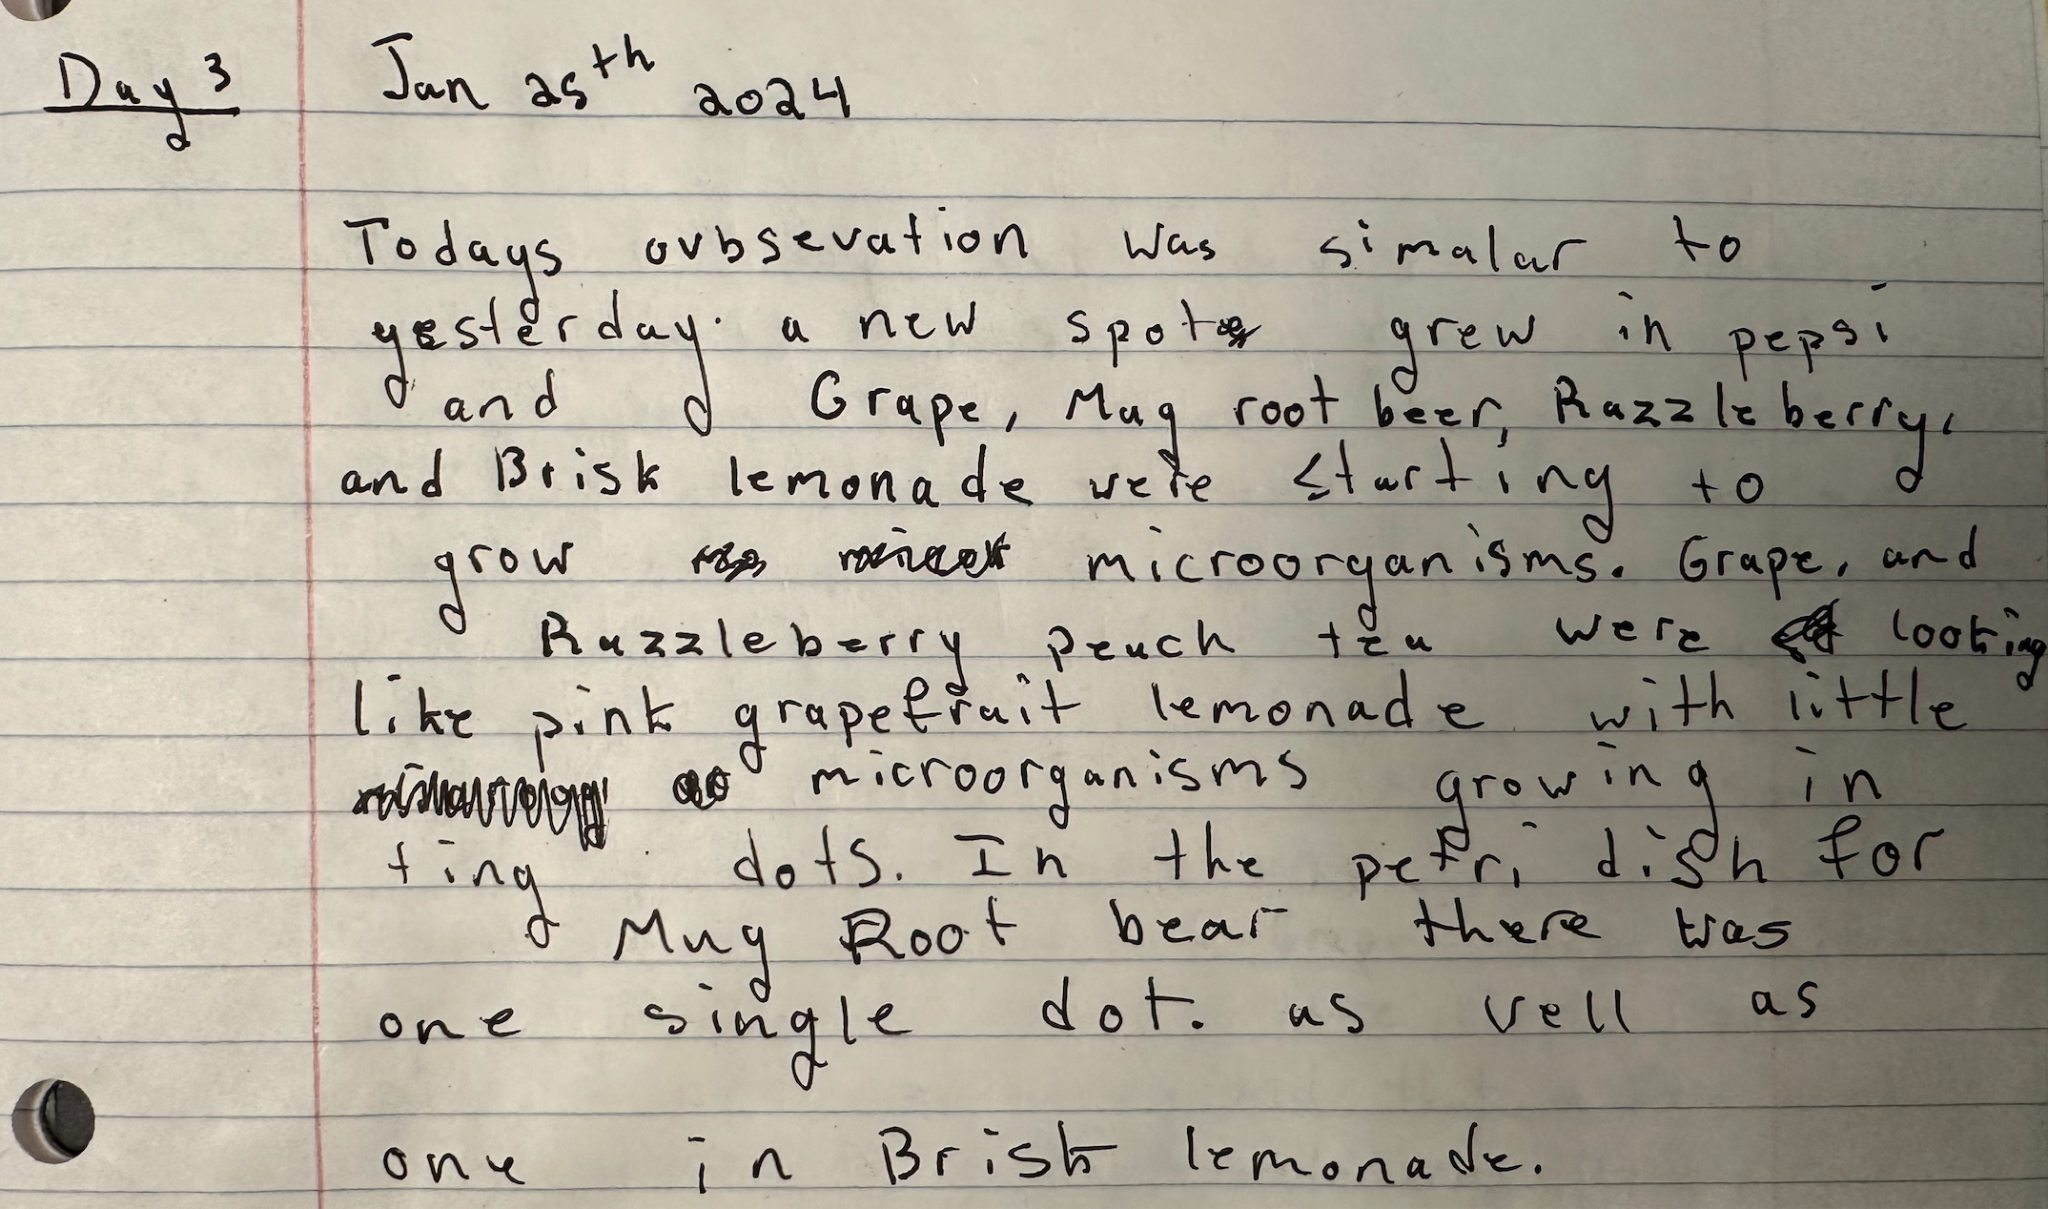 Day 3 Jan 25th 2024
Todays ovbsevation was simalar to
yesterday. a new spot grew in pepsi
and Grape, Mug root beer, Razzleberry,
and Brisk lemonade were starting to
grow microorganisms. Grape, and
Razzleberry peach tea were looking
like pink grapefruit lemonade with little
microorganisms growing in
ting dots. In the petri dish for
Mug Root bear there was
one single dot. as vell as
one in Brisk lemonade.